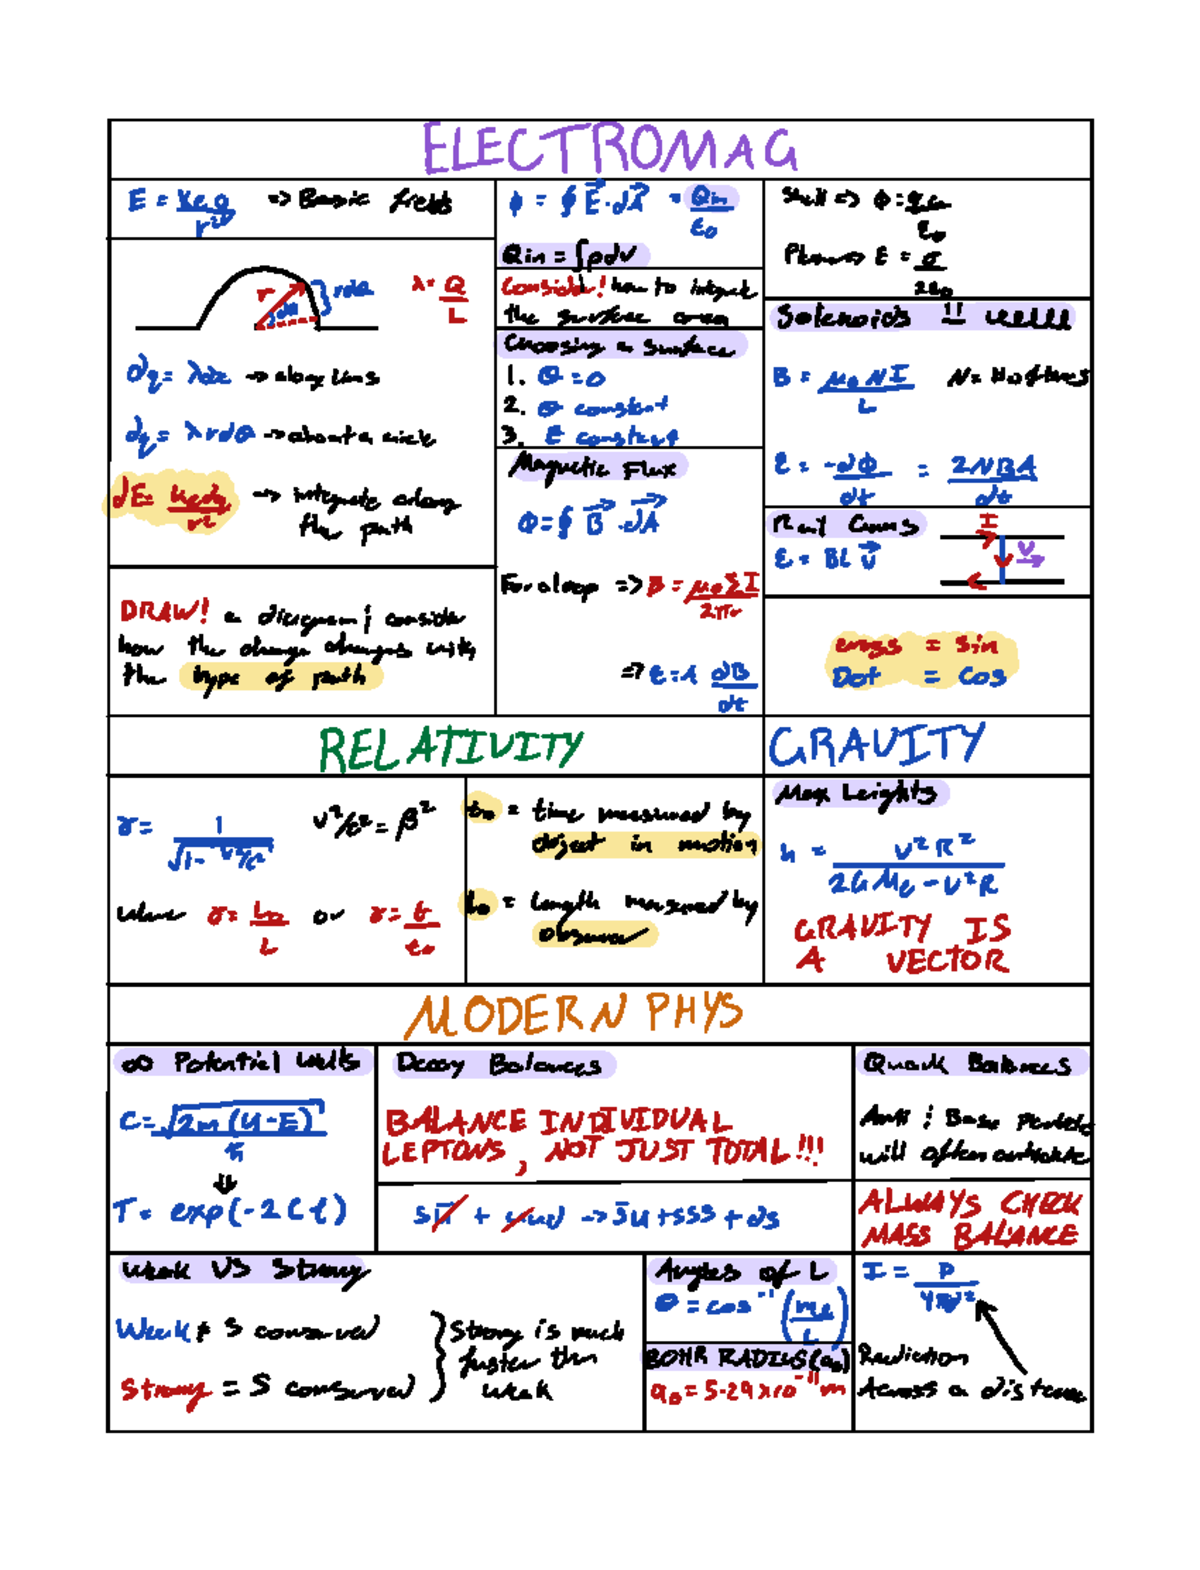 ELECTROMAG
E = keq/r² => Basic fields
r
dθ
rdθ
λ = Q/L
dq = λdx -> along lines
dq = λrdθ -> about a circle
dE = kedq/r² -> integrate along
the path
DRAW! a diagram; consider
how the charge changes with
the type of path
ϕ = ∮ E·dA = Qin/ε₀
Qin = ∫ρdv
Consider! how to integrate
the surface area
Choosing a surface
1. Θ = 0
2. Θ constant
3. E constant
Magnetic Flux
Φ = ∮ B · dA
For a loop => B = μ₀ΣI/2πr
=> ε = A dB/dt
Shell => Φ = /ε₀
E = σ/2ε₀
Solenoids
B = μ₀NI/L N = # of turns
ε = -dΦ/dt = 2NBA/dt
Rail Guns
ε = BL v
I
v
cross = sin
Dot = cos
RELATIVITY
γ = 1/√1-v²/c² v²/c² = β²
where γ = L₀/L or γ = t/t₀
t₀ = time measured by
object in motion
L₀ = length measured by
observer
GRAVITY
Max heights
h = v²R²/2GMe - v²R
GRAVITY IS
A VECTOR
MODERN PHYS
∞ Potential Wells
C = √2m(U-E)/ħ
⇓
T = exp(-2CL)
Decay Balances
BALANCE INDIVIDUAL
LEPTONS, NOT JUST TOTAL!!!
su̅ + uud -> s̅u + sss + ds
Quark Balances
Anti ; Base
will often annihilate
ALWAYS CHECK
MASS BALANCE
Weak VS Strong
Weak ≠ S conserved
Strong = S conserved
Strong is much
faster than
weak
Angles of L
θ = cos⁻¹(mℓ/L)
BOHR RADIUS (a₀)
a₀ = 5.29 x 10⁻¹¹ m
I = P/4πr²
Radiation
Across a distance